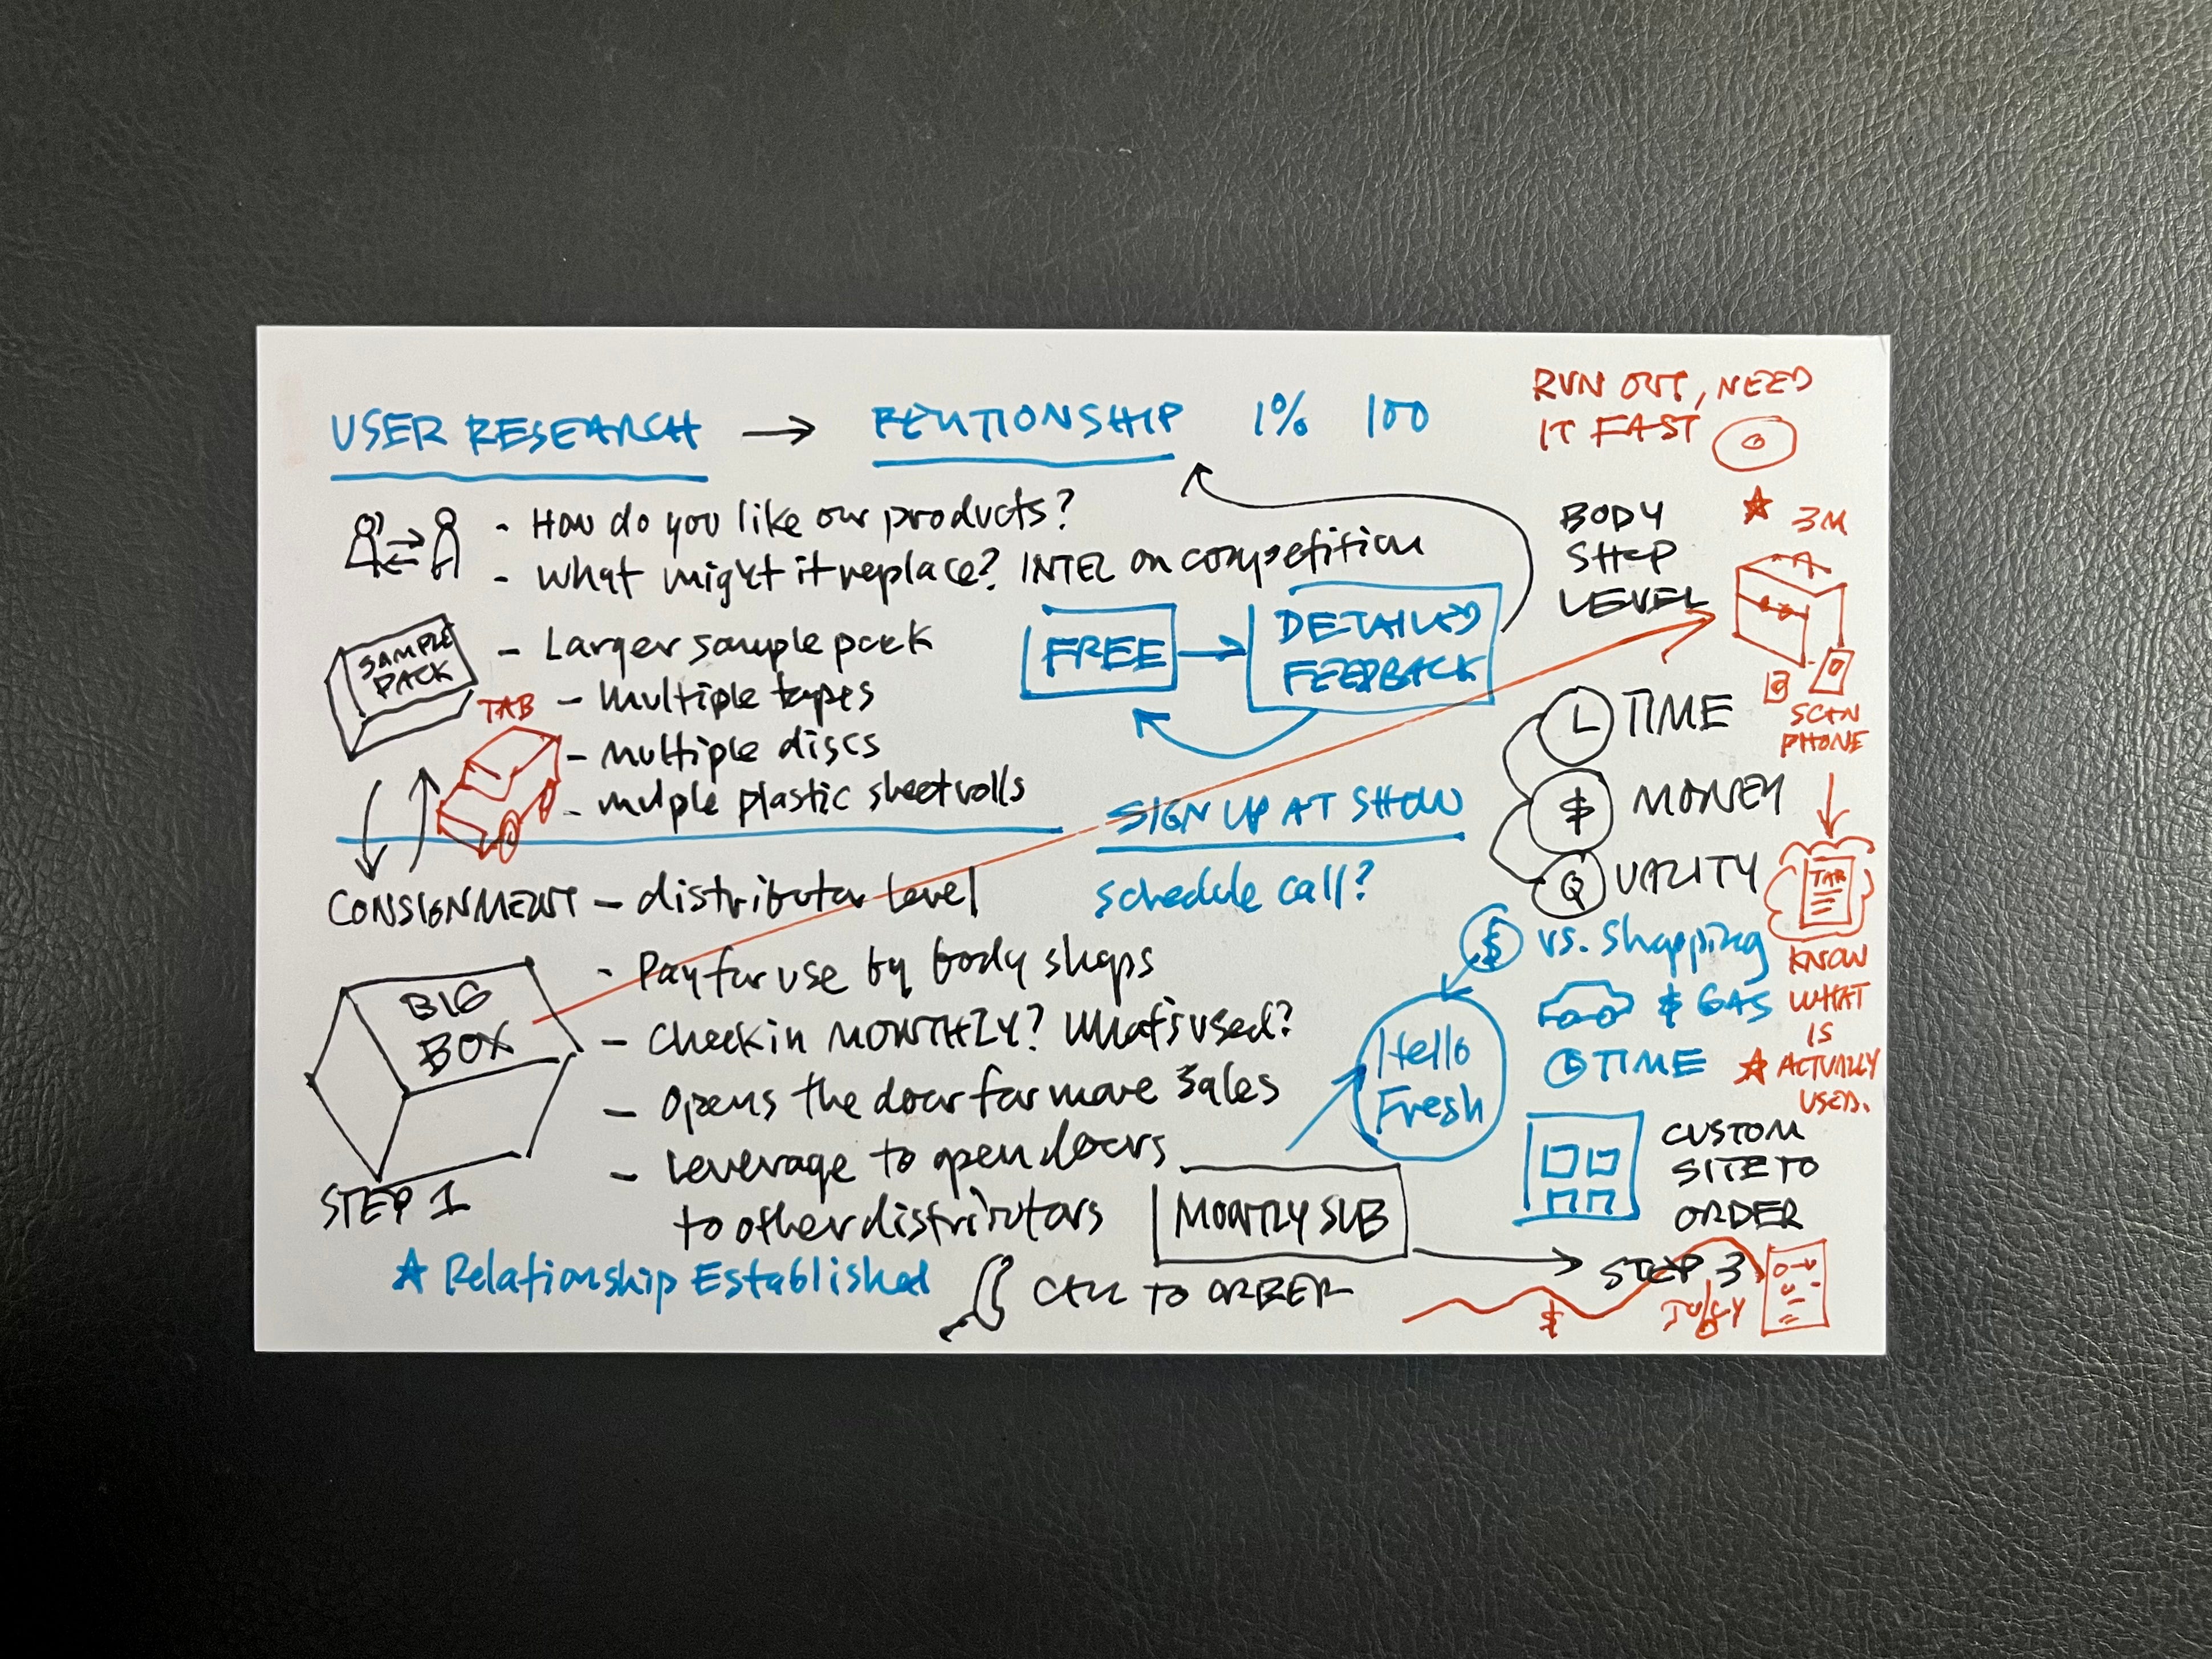 USER RESEARCH → RELATIONSHIP 1% 100
- How do you like our products?
- What might it replace? INTEL on competition
SAMPLE
PACK
- Larger sample pack
- Multiple tapes
- Multiple discs
- Mulple plastic sheet rolls
TAB
FREE → DETAILED
FEEDBACK
SIGN UP AT SHOW
schedule call?
CONSIGNMENT - distributor level
BIG
BOX
STEP 1
- Pay for use by body shops
- Check in MONTHLY? What's used?
- Opens the door for more sales
- Leverage to open doors
to other distributors
★ Relationship Established
CALL TO ORDER
MONTLY SUB
Hello
Fresh
RUN OUT, NEED
IT FAST
BODY
SHOP
LEVEL
★ 3M
SCAN
PHONE
TAB
KNOW
WHAT
IS
★ ACTUALLY
USED.
TIME
$ MONEY
QUALITY
$ vs. Shopping
$ GAS
TIME
CUSTOM
SITE TO
ORDER
STEP 3
$